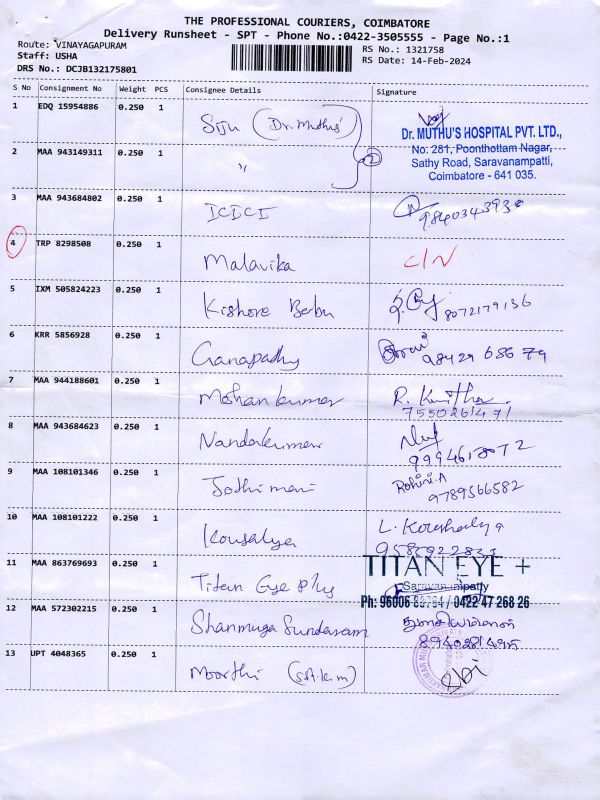 THE PROFESSIONAL COURIERS, COIMBATORE
Delivery Runsheet - SPT - Phone No.:0422-3505555 - Page No.:1
Route: VINAYAGAPURAM
Staff: USHA
DRS No.: DCJB132175801
RS No.: 1321758
RS Date: 14-Feb-2024
S No Consignment No Weight PCS Consignee Details Signature
1 EDQ 15954886 0.250 1 Siju (Dr. Muthu's)
Dr. MUTHU'S HOSPITAL PVT. LTD.,
No: 281, Poonthottam Nagar,
Sathy Road, Saravanampatti,
Coimbatore - 641 035.
2 MAA 943149311 0.250 1 " 2
3 MAA 943684802 0.250 1 ICICI
9840343930
4 TRP 8298508 0.250 1 Malavika C/N
5 IXM 505824223 0.250 1 Kishore Babu 8072179136
6 KRR 5856928 0.250 1 Ganapadhy 98429 68679
7 MAA 944188601 0.250 1 Mohankumar R. Kavitha
7550261471
8 MAA 943684623 0.250 1 Nandakumar
9994618072
9 MAA 108101346 0.250 1 Jothimani Rohini.A
9789566582
10 MAA 108101222 0.250 1 Kousalya L. Koushalya
11 MAA 863769693 0.250 1 Titan Eye Plus
TITAN EYE +
Saravanampatty
Ph: 96006 / 0422 47 268 26
12 MAA 572302215 0.250 1 Shanmuga Sundaram
8940281495
13 UPT 4048365 0.250 1 Moorthi